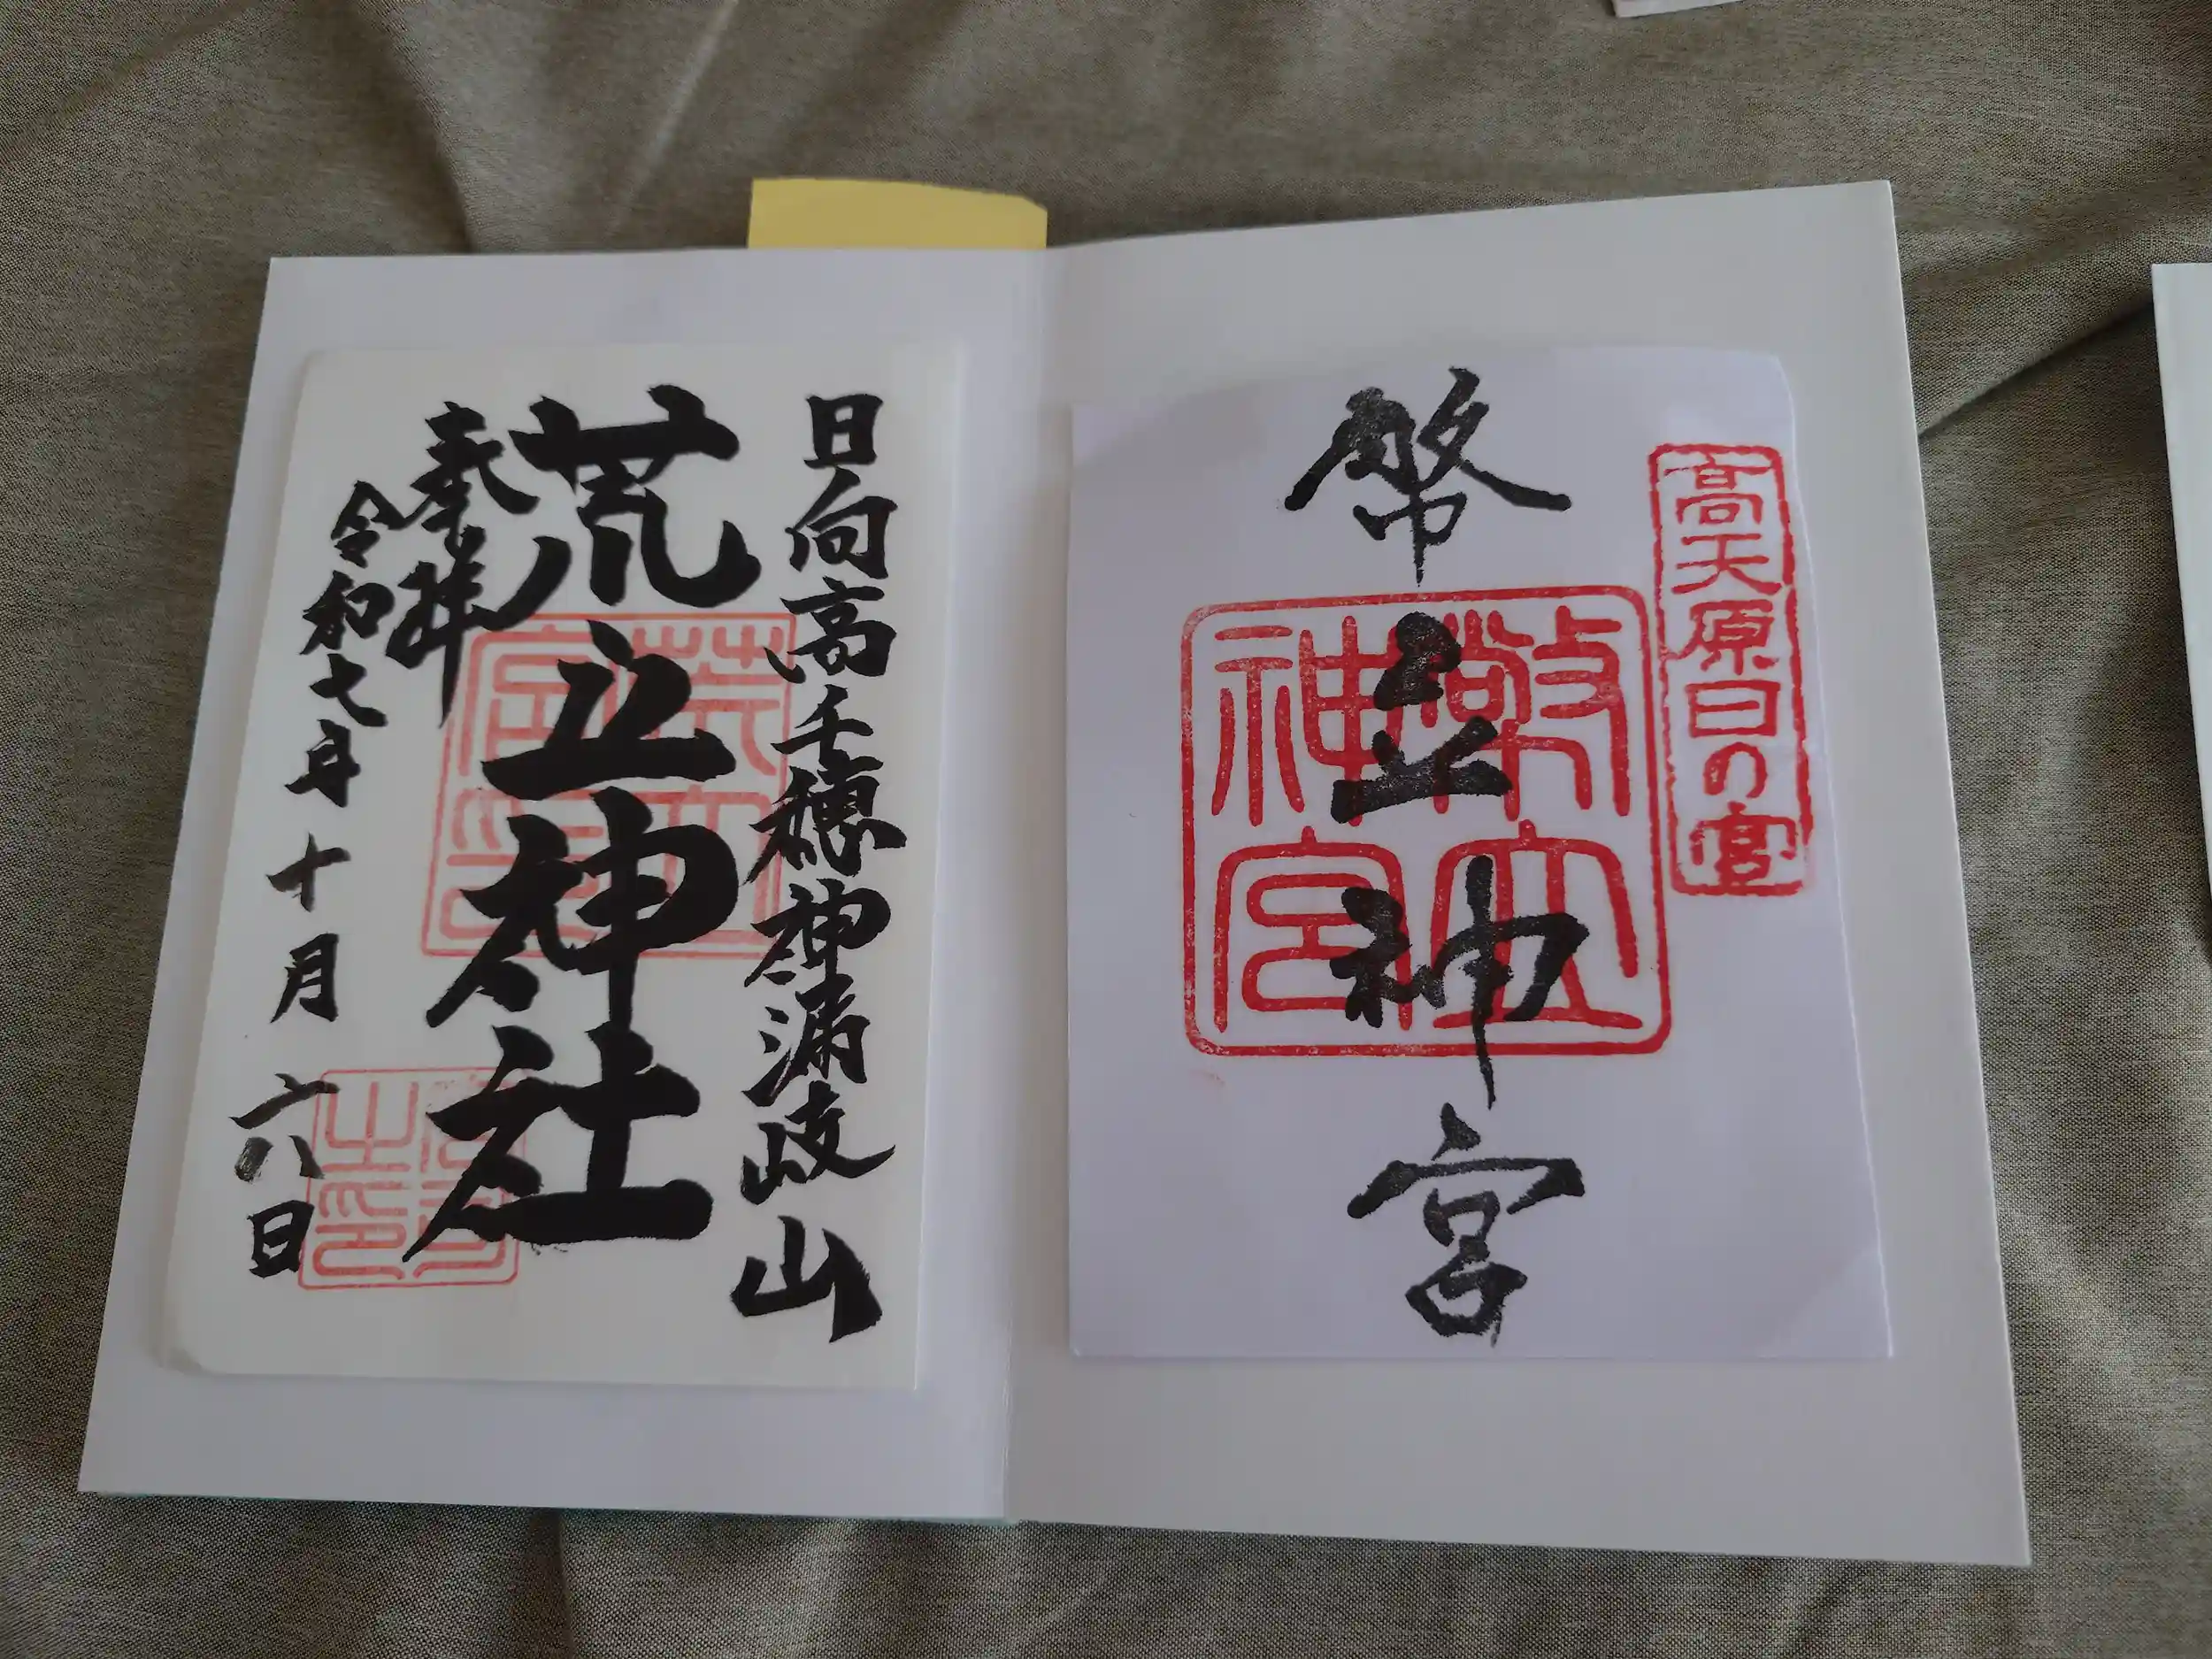 高天原日の宮
幣立神宮
幣立神宮
日向高千穂神漏岐山
荒立神社
荒立宮印
奉拝
令和七年十月六日
宮司之印